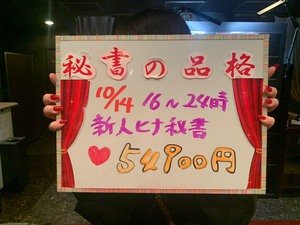 秘書の品格
10/14 16〜24時
新人ヒナ秘書
♥54900円